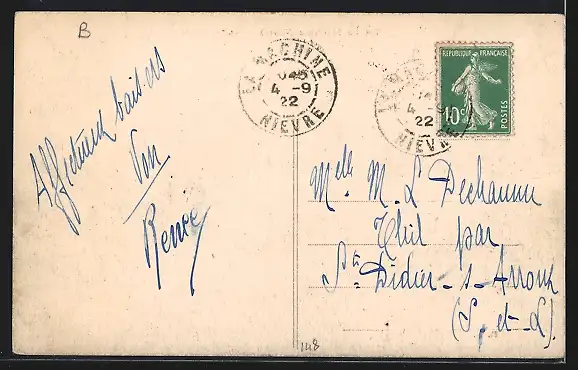 B
Affectueux baisers
Ton
René
LA MACHINE
4 - 9
22
NIEVRE
LA MAC
4 - 9
22
NIEVRE
REPUBLIQUE FRANÇAISE
10c
POSTES
Melle M. L Dechaume
par
St. Didier-s-Arroux
(S. et-L.)
148